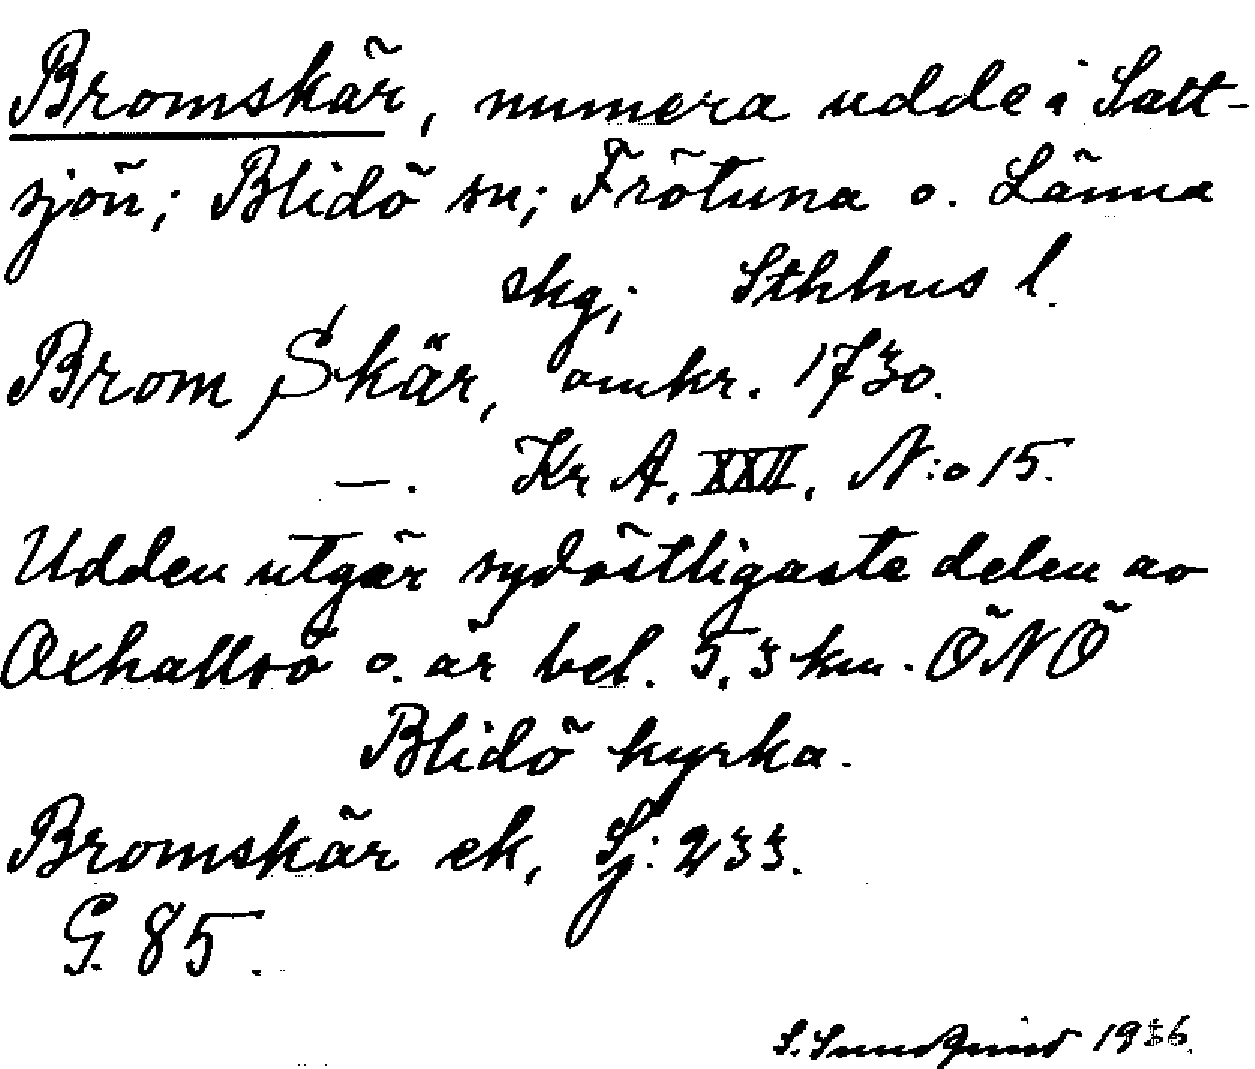 Bromskär, numera udde i Salt-
sjön; Blidö sn; Frötuna o. Länna
skg; Sthhus l.
Brom Skär, omkr. 1730.
—. Kr A. XXII. N:o 15.
Udden utgör sydöstligaste delen av
Oxhallsö o. är bel. 5,3 km. ÖNÖ
Blidö kyrka.
Bromskär ek, Sj: 233.
G. 85.
S. Sundqvist 1936.